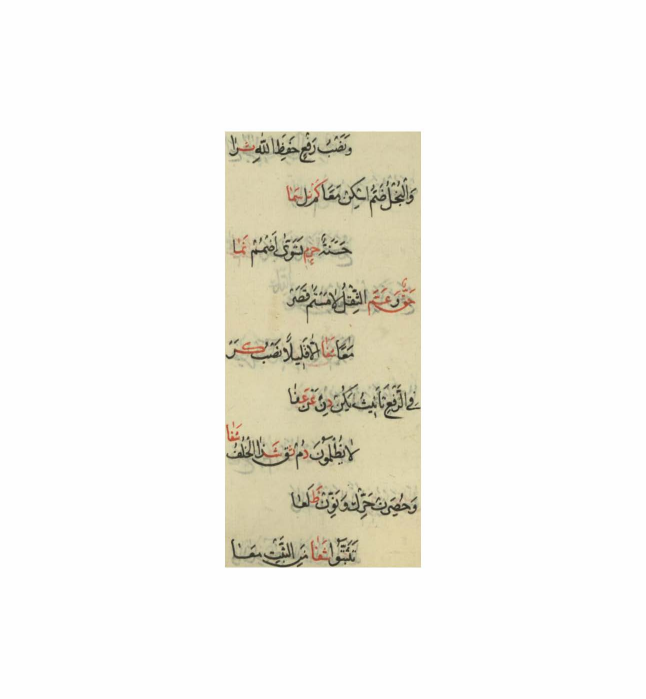 وَنَصْبُ رَفْعِ حَفِظَ اللهُ ثَرَا
وَالْبُخْلُ ضُمَّ اسْكِنْ مَعًا كَمْ نَلْ سَمَا
حَسَنَةٌ حِرْمٌ تَسَوَّى اضْمُمْ نَمَا
حَقٌّ وَعَمَّ الثِّقْلُ لَامَسْتُمْ قَصَرْ
مَعًا شَفَا إِلَّا قَلِيلًا نَصْبُ كَرْ
فِي الرَّفْعِ تَأْنِيثُ يَكُنْ دِنْ عَنْ غَفَا
لَا يُظْلَمُو دُمْ ثِقْ شَذَا الْخُلْفُ شَفَا
وَحَصِرَتْ حَرِّكْ وَنَوِّنْ ظَلَعَا
تَثَبَّتُوا شَفَا مِنَ الثَّبْتِ مَعَا